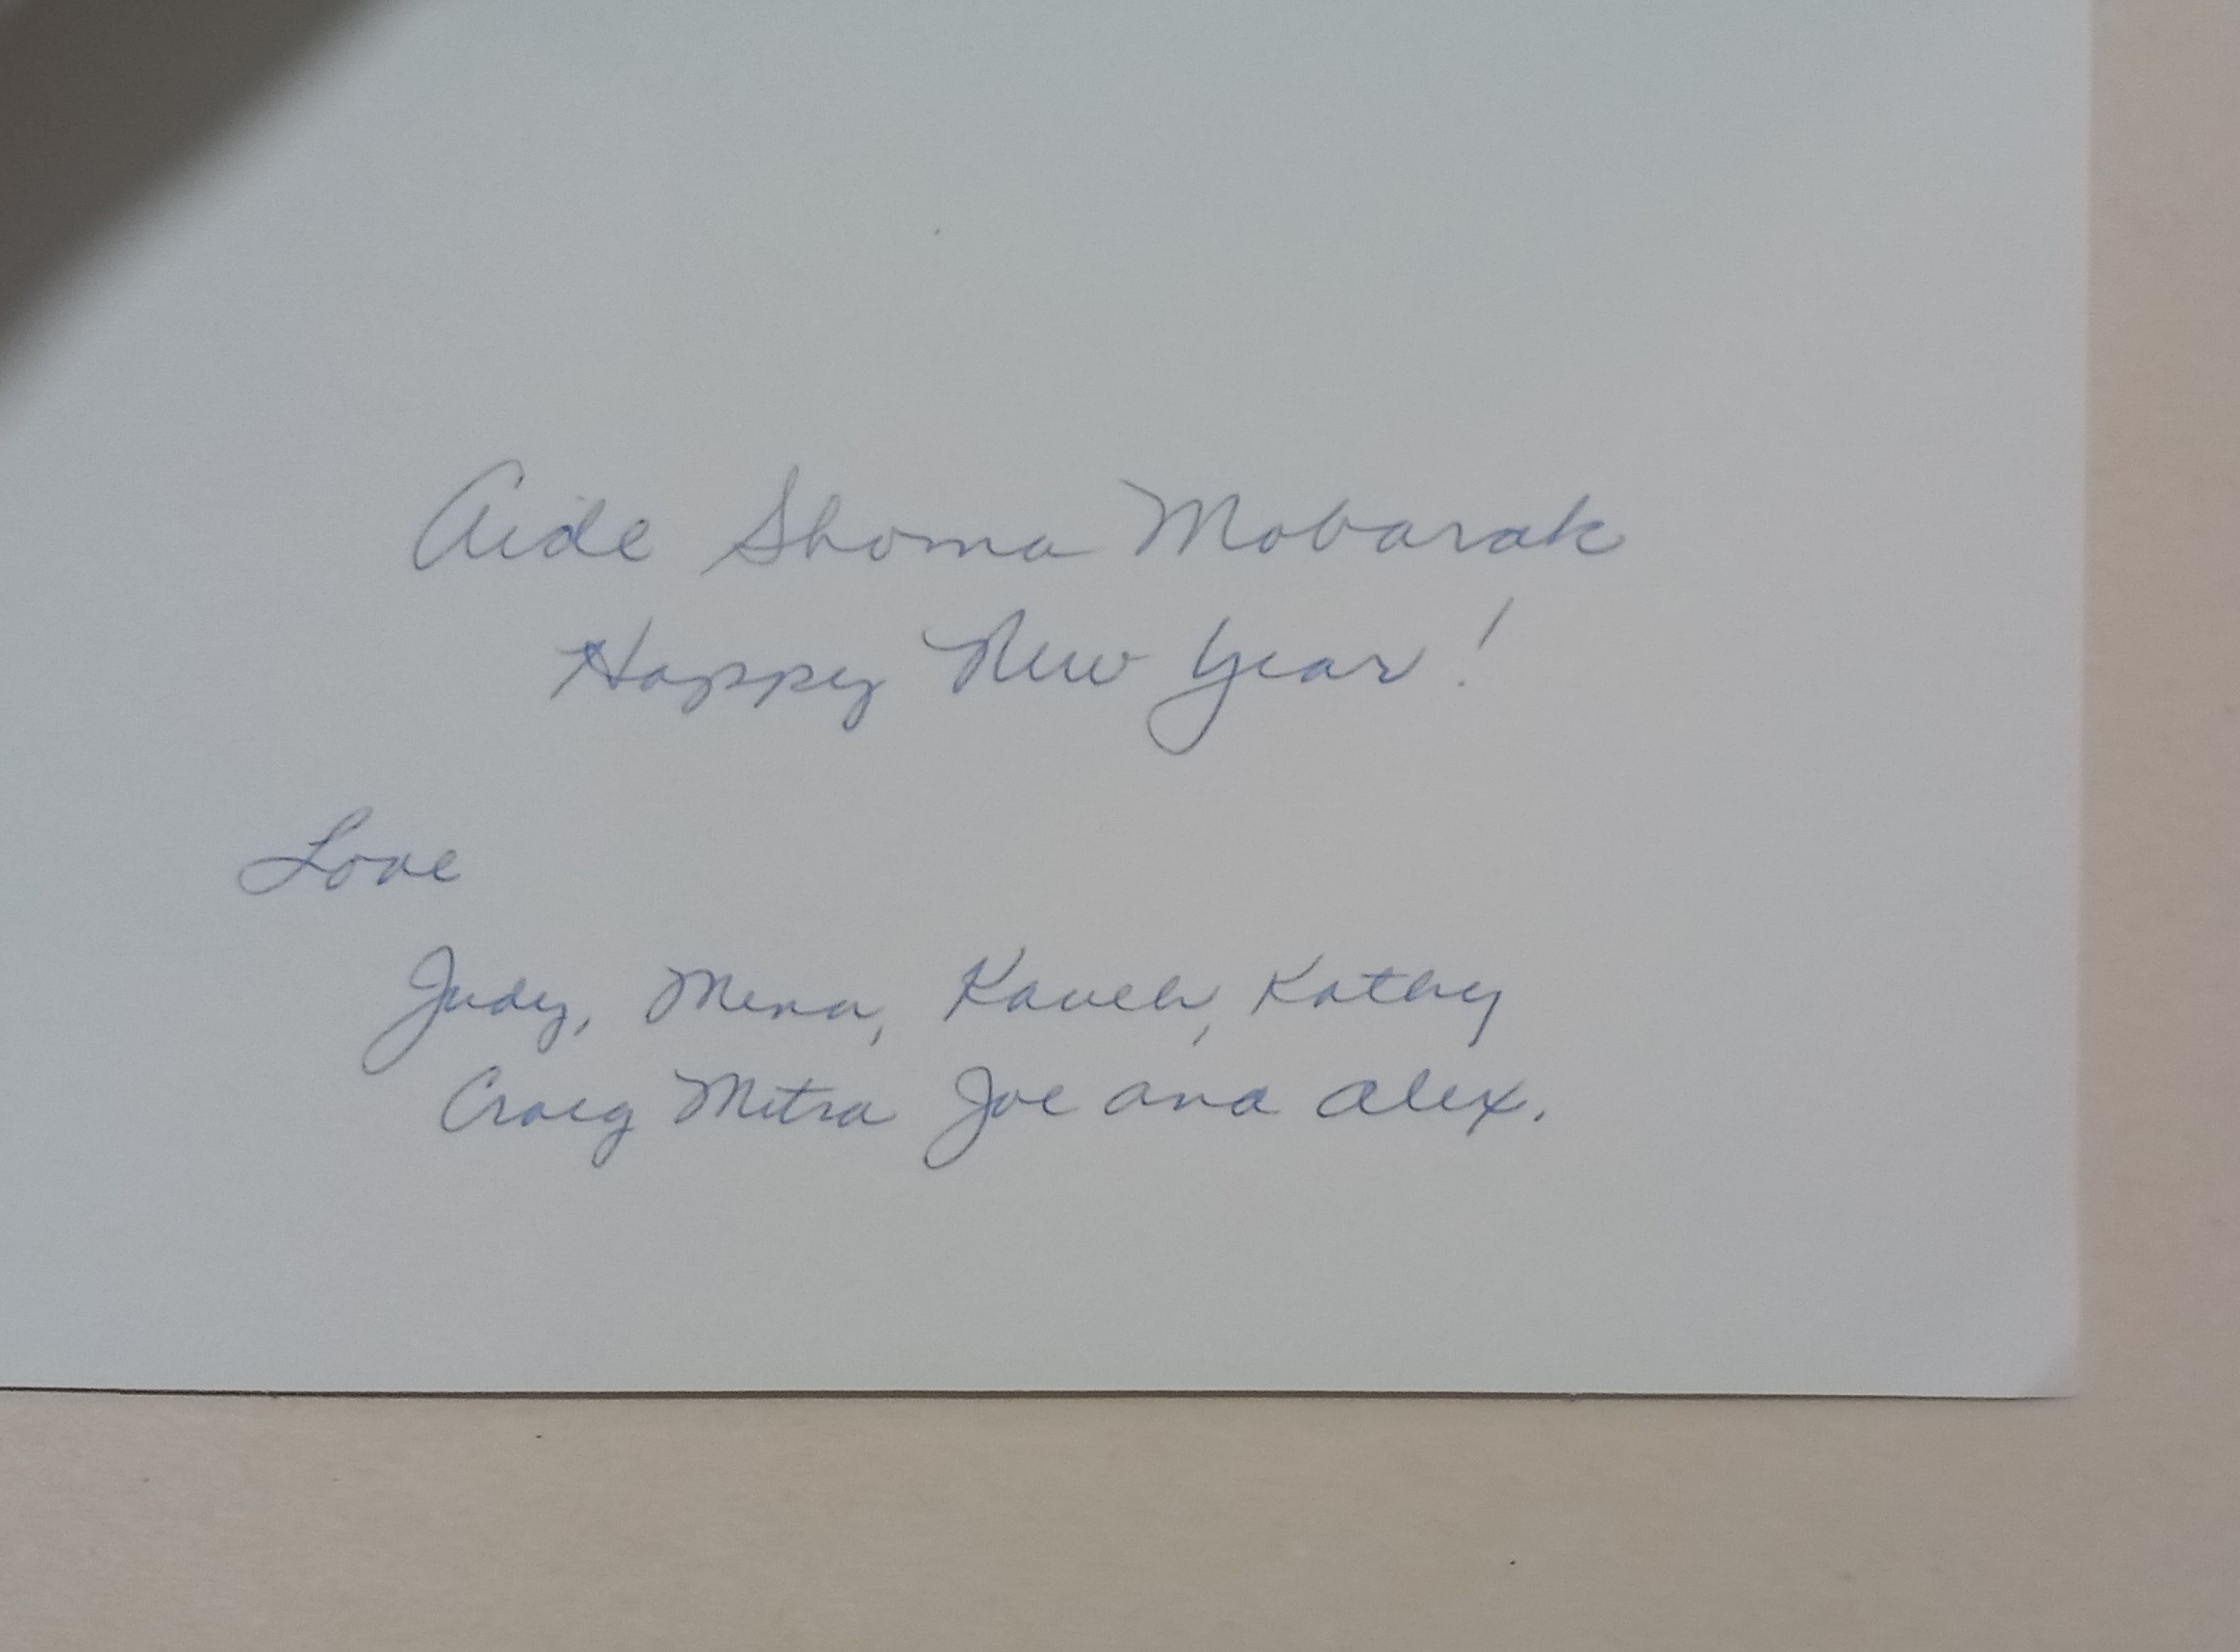 Aide Shoma Mobarak
Happy New Year!
Love
Judy, Mena, Kaveh, Kathy
Craig Mitra Joe and Alex.